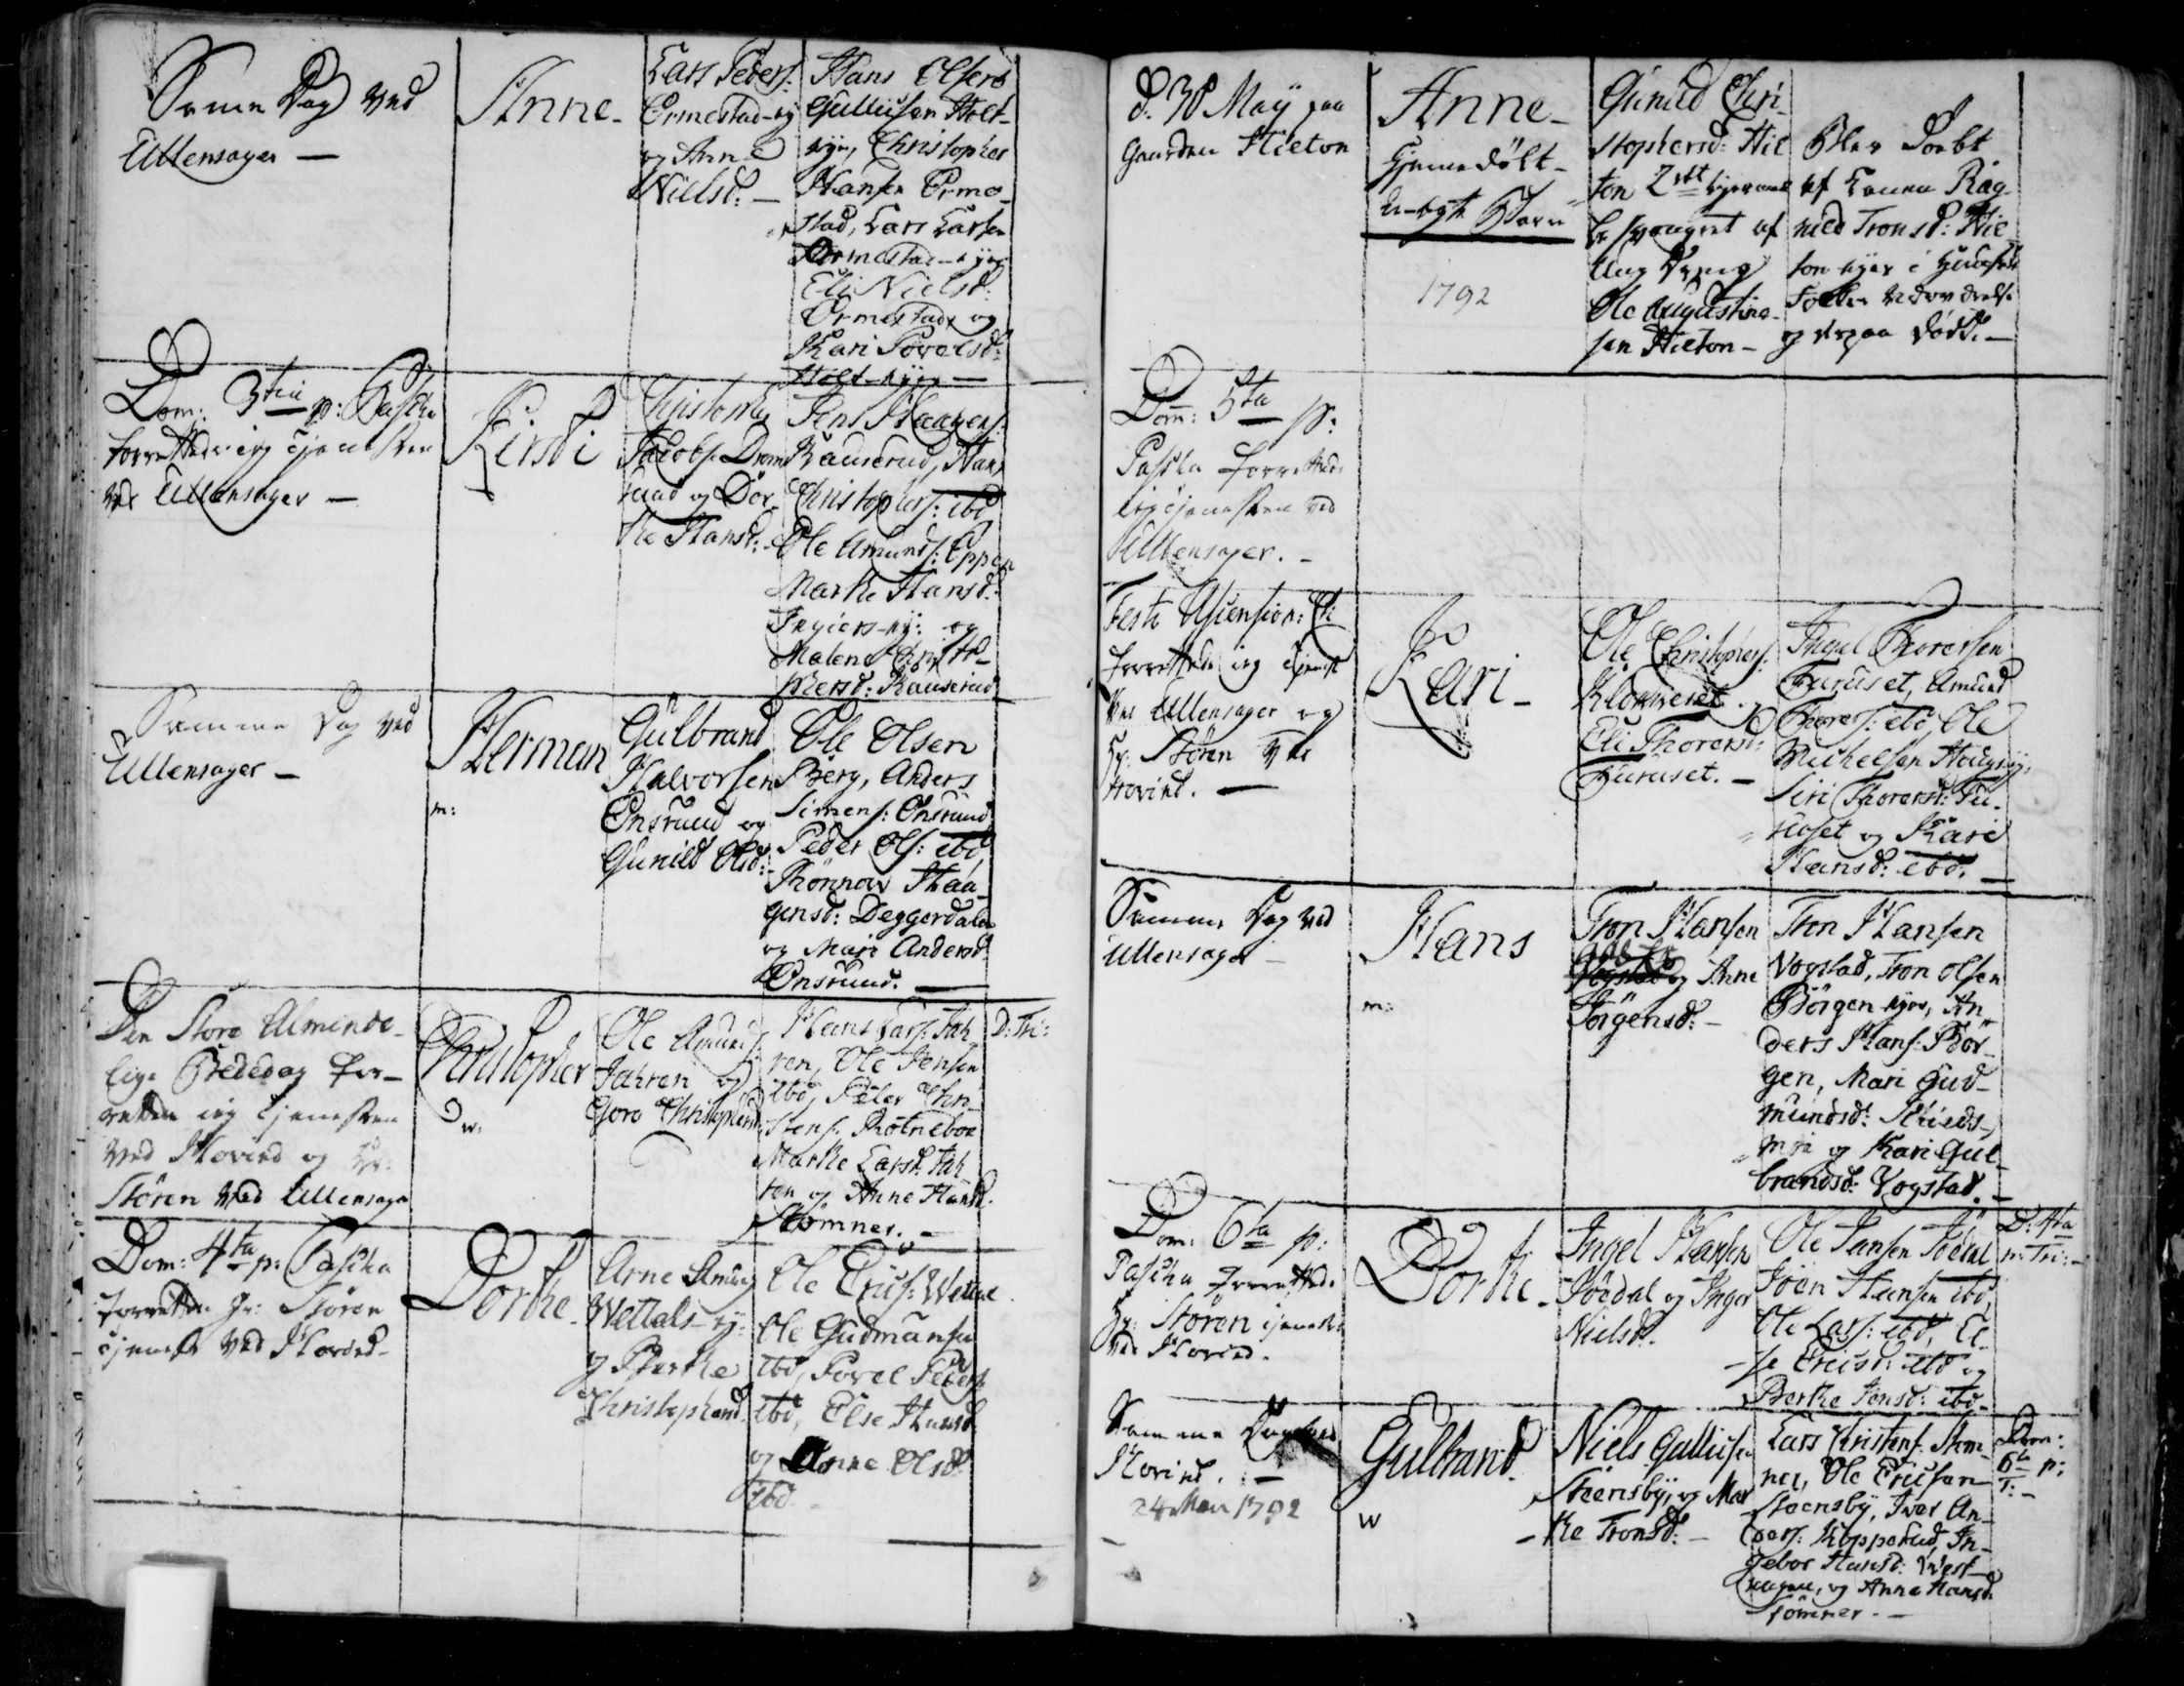 Samme Dag ved
Ullensager —
Anne -
Lars Peders:
Ormestad-ey
og Anne
Nielsd: —
Hans Olsens
Gullichsen Holt-
eye, Christopher
Hansen Orme-
stad, Lars Larsen
Ormestad-eye
Eli Nielsd:
Ormestad og
Kari Povelsd:
Holt-eye —
Dom: 3tia p: Pascha
forrettede ieg Tjenesten
ved Ullensager —
Kirsti
Christopher
Jacobs:
og Dor-
the Hansd: -
Jens Haagens:
Rauserud, Hans
Christophers: ibd
Ole Amunds:
Marthe Hansd:
og
Malene Christo-
phersd: Rauserud
Samme Dag ved
Ullensager —
Herman
m:
Gulbrand
Halvorsen
Onsruud og
Gunild Olsd:
Ole Olsen
Berg, Anders
Simens: Onsruud
Peder Ols: ibd,
Rønnow Haa-
gensd: Deggerdalen
og Mari Andersd:
Onsruud. —
Den Store Alminde-
lige Bededag for-
rettede ieg Tjenesten
ved Hovind og Hr:
Støren ved Ullensager
Christopher
w:
Ole Amunds:
Jahren og
Goro Christophersd:
Hans Lars: Jah-
ren, Ole Jensen
ibd, Peder Chri-
stens:
Marthe Larsd: Jah-
ren og Anne Hansd:
Stømner. —
D: Tri:
Dom: 4ta p: Pascha
forrettede Hr: Støren
Tjenesten ved Hovind -
Dorthe -
Arne Amunds:
Wettals-ey:
og Berthe
Christophersd:
Ole Erics: Wettal
Ole Gudmunsen
ibd, Povel Peders:
ibd, Else Hansd:
og Anne Olsd:
ibd. -
d: 30 May paa
Gaarden Hieton
Anne -
hjemmedøbt
u-ægte Barn
1792
Gunild Chri-
stophersd: Hie-
ton 2den
besvangret af
Ung Dreng
Ole Augustine-
sen Hieton -
Blev Døbt
af Konen Rag-
nild Tronsd: Hie-
ton-eyer i
og derpaa døde. —
Dom: 5ta p:
Pascha forrettede
ieg Tjenesten ved
Ullensager. -
Festo Ascension: Chr:
forrettede ieg Tjenesten
ved Ullensager og
Hr: Støren ved
Hovind. —
Kari -
Ole Christophers:
Kløkkeset og
Eli Thoresd:
Furuset. —
Ingel Thoresen
Furuset, Amund
Thores: ibd, Ole
Michelsen
Siri Thoresd: Fu-
ruset og Kari
Hansd: ibd. —
Samme Dag ved
Ullensager —
Hans
m:
Tron Hansen
Vogstad og Anne
Jörgensd: —
Tron Hansen
Vogstad, Tron Olsen
Börgen-eyer, An-
ders Hans: Bör-
gen, Mari Gud-
mundsd:
og Kari Gul-
brandsd: Vogstad. —
Dom: 6ta p:
Pascha forrettede
Hr: Støren Tjenesten
ved Hovind.
Dorthe -
Ingel Hansen
Jödal og Inger
Nielsd: -
Ole Jansen Jödal
Joen Hansen ibd,
Ole Lars: ibd, El-
se Ericsd: ibd og
Berthe Jensd: ibd -
D: 4ta
p: Tri: -
Samme Dag ved
Hovind. —
24 Mai 1792
Gulbrand.
w
Niels Gullichsen
Steensby, og Mar-
the Tronsd: —
Lars Christens: Stem-
ner, Ole Ericsen
Steensby, Iver An-
ders: Kopperud, In-
gebor Hansd: West-
og Anne Hansd:
Stömner. —
Dom:
6ta p:
T: -